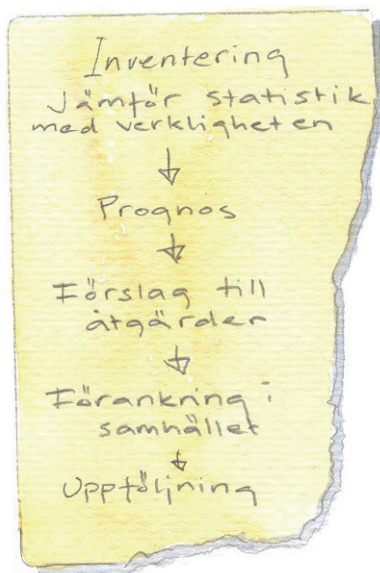 Inventering
Jämför statistik
med verkligheten
↓
Prognos
↓
Förslag till
åtgärder
↓
Förankring i
samhället
↓
Uppföljning